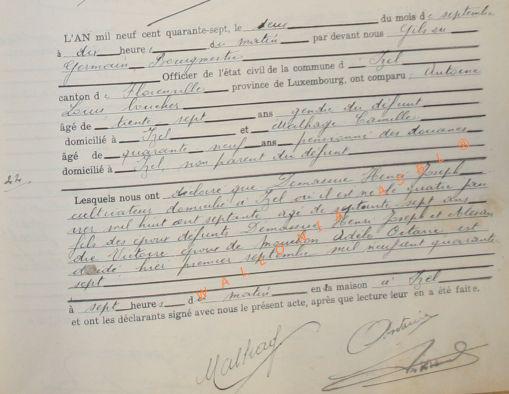 L'AN mil neuf cent quarante-sept, le deux du mois de septembre
à dix heures du matin par devant nous Gilson
Germain, Bourgmestre
Officier de l'état civil de la commune d'Izel
canton de Florenville province de Luxembourg, ont comparu: Antoine
Louis
âgé de trente sept ans gendre du défunt
domicilié à Izel et Malhage Camille
âgé de quarante neuf ans pensionné des douanes
domicilié à Izel, non parent du défunt
22.
Lesquels nous ont déclaré que Demasure Henri Joseph
cultivateur domicilié à Izel où il est né le quatre jan
vier mil huit cent septante, âgé de septante sept ans
fils des époux défunts Demasure Henri Joseph et
Victoire époux de Adèle Octavie est
décédé hier premier septembre mil neuf cent quarante
sept
à sept heures du matin en la maison à Izel
et ont les déclarants signé avec nous le présent acte, après que lecture leur en a été faite.
WALLONIA ASBL ®
Malhage
Antoine